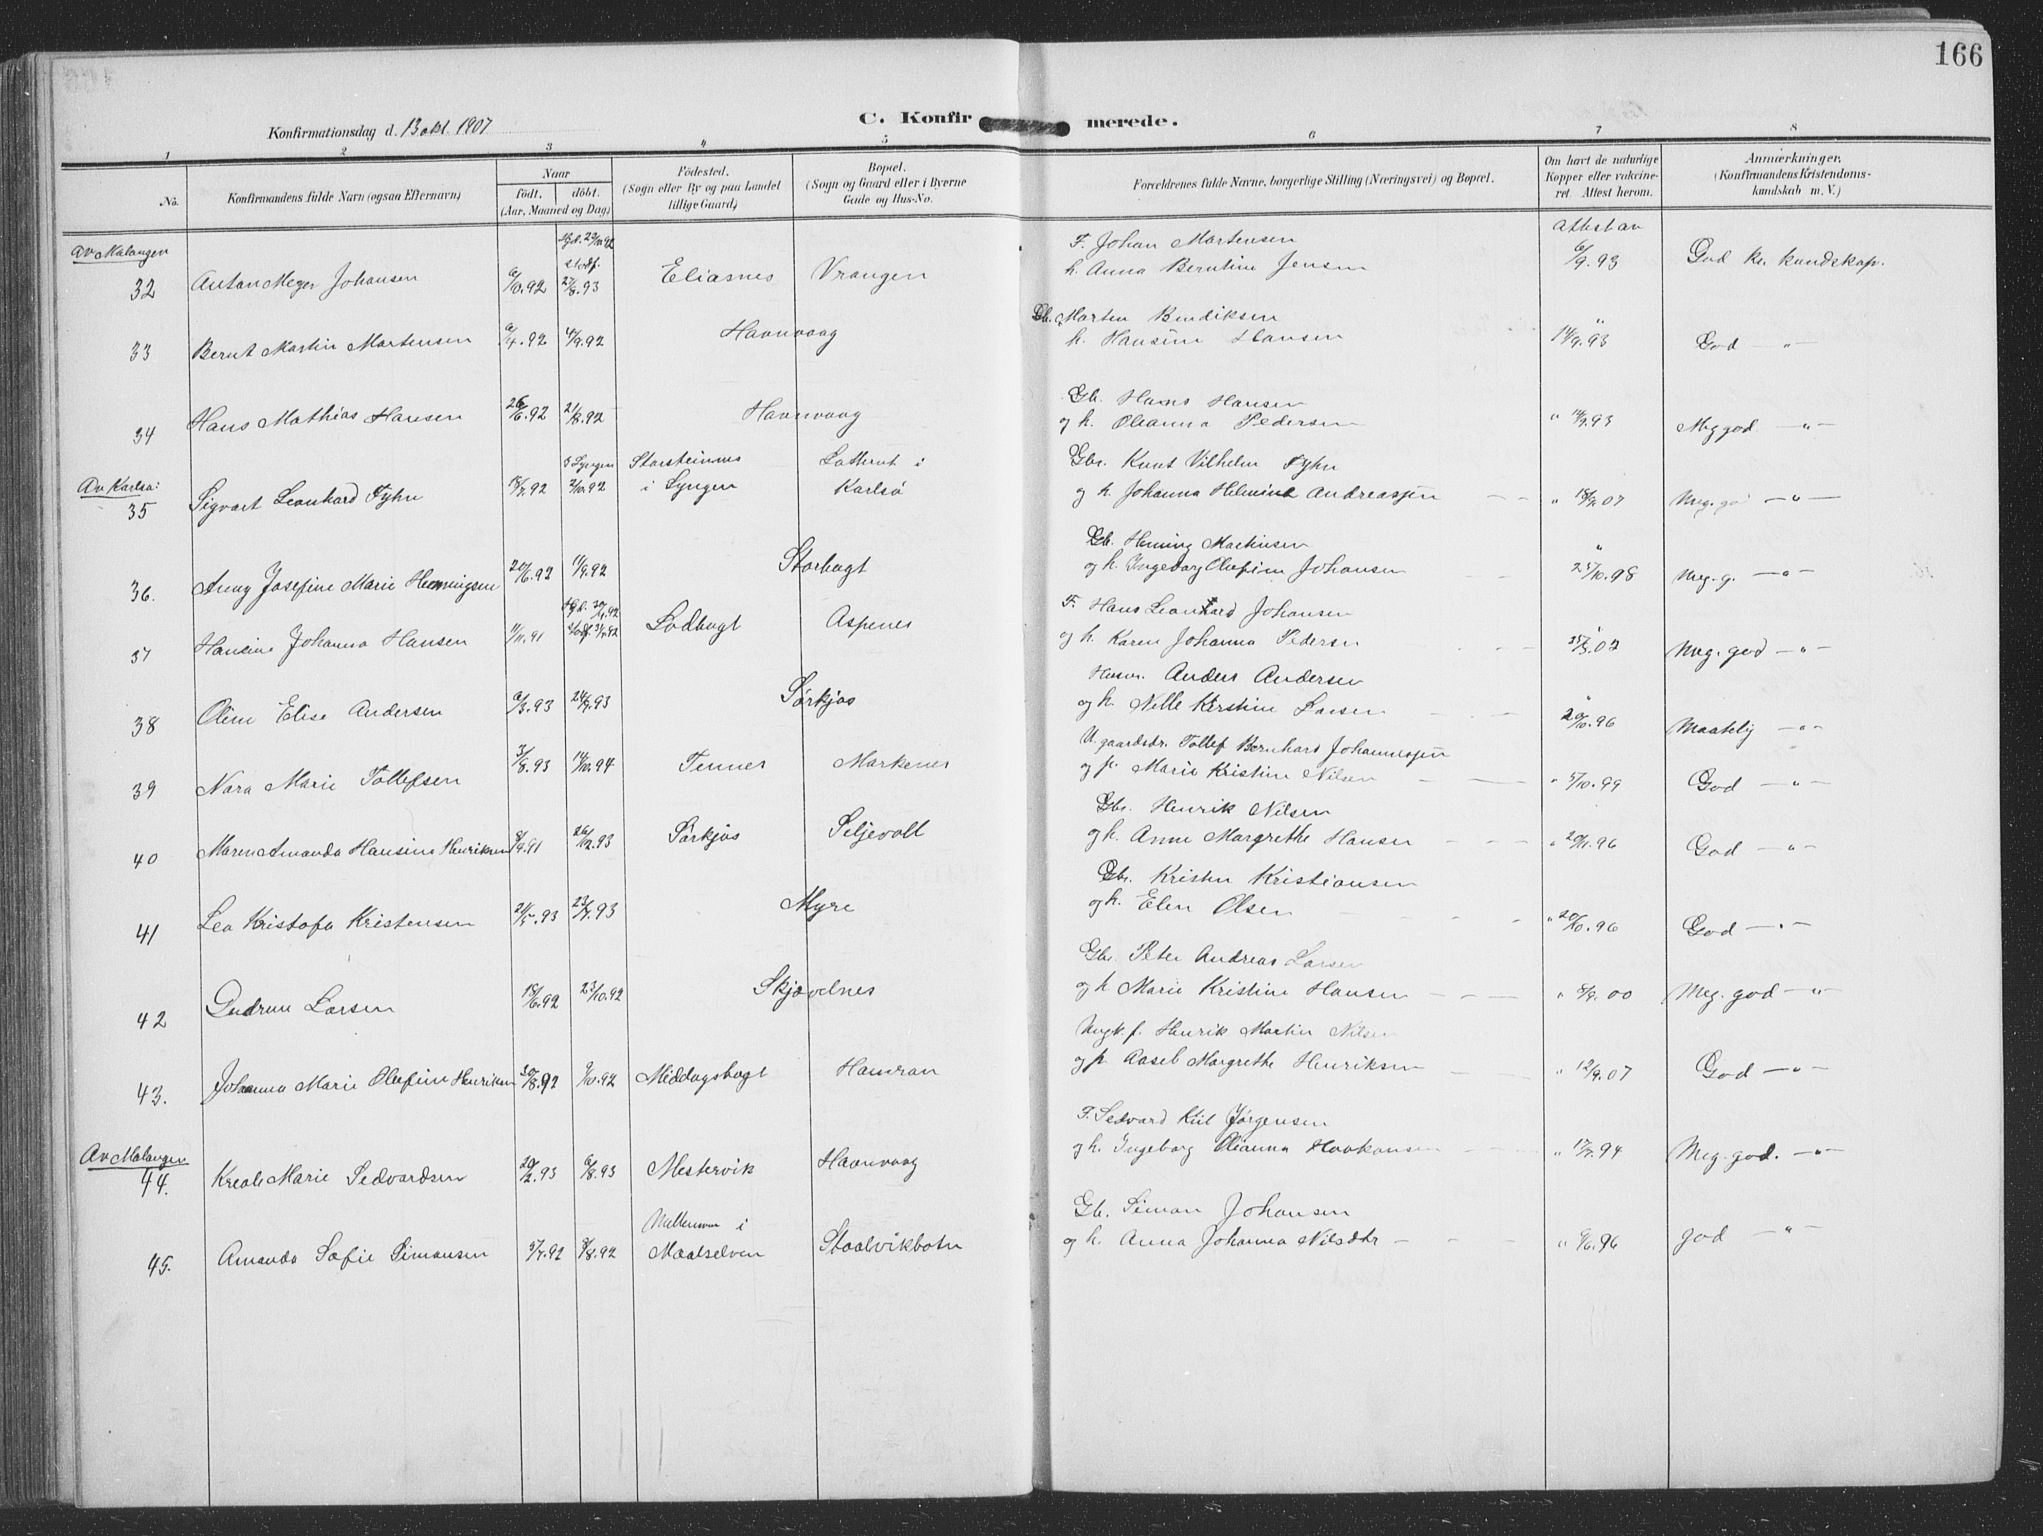 166
Konfirmationsdag d. 13 okt. 1907
C. Konfirmerede.
1 2 3 4 5 6 7 8
No.
Konfirmandens fulde Navn (ogsaa Efternavn)
Naar
födt. döbt.
(Aar, Maaned og Dag)
Födested.
(Sogn eller By og paa Landet
tillige Gaard)
Bopæl.
(Sogn og Gaard eller i Byerne
Gade og Hus-No.
Forældrenes fulde Navne, borgerlige Stilling (Næringsvei) og Bopæl.
Om havt de naturlige
Kopper eller vakcine-
ret Attest herom.
Anmærkninger.
(Konfirmandens Kristendoms-
kundskab m. V.)
Av Malangen
Attest av
32 Antan Meyer Johansen 6/10.92 Hjd. 29/10.92 stadf. 27/8.93 Eliasnes Vrangen
F. Johan Martensen
h. Anna Berntine Jensen 6/9.93 God kr. kundskap.
33 Bernt Martin Martensen 6/4.92 4/9.92 Havnvaag
Gb. Marten Bendiksen
h. Hansine Hansen " 14/9.93 God — " —
34 Hans Mathias Hansen 26/6.92 21/8.92 Havnvaag
Gb. Hans Hansen
og h. Oleanna Pedersen " 14/9.93 Meg god — " —
Av Karlsø:
35 Sigvart Leonhard Fyhn 18/7.92 i Lyngen 2/10.92 Storsteinnes i Lyngen Karlsö
Gbr. Knut Vilhelm Fyhn
og h. Johanna Helmine Andreassen " 18/9.07 Meg. go — " —
36. Anny Josefine Marie Henningsen 20/6.92 11/9.92 Storbugt
Gb. Hening Martinsen
og h. Ingeborg Olefine Johansen " 25/10.98 Meg. g. — " —
37 Hansine Johanna Hansen 11/11.91 Hjd. stadf. Lodbugt Aspenes
F. Hans Leonhard Johansen
og h. Karen Johanna Pedersen 25/8.02 Meg. god — " —
38 Oline Elise Andersen 6/3.93 24/9.93 Sørkjos
Husm. Anders Andersen
og h. Nille Kerstine Larsen " 20/10.96 Maatelig — " —
39 Nora Marie Tollefsen 3/8.93 14/10.94 Tennes Markenes
U. gaardsbr. Tollef Bernhard Johannessen
og p. Marie Kristine Nilsen " 5/10.99 God — " —
40 Maren Amanda Hansine Henriksen 8/9.91 26/12.93 Sørkjos Seljevoll
Gbr. Henrik Nilsen
og h. Anne Margrethe Hansen " 20/11.96 God — " —
41 Lea Kristofa Kristensen 21/5.93 23/7.93 Myre
Gbr. Kristen Kristiansen
og h. Elen Olsen " 20/10.96 God — " —
42 Gudrun Larsen 18/6.92 23/10.92 Skjævelnes
Gbr. Peter Andreas Larsen
og h. Marie Kristine Hansen " 8/9.00 Meg. god — " —
43. Johanna Marie Olefine Henriksen 30/8.92 9/10.92 Middagsbugt Hamran
Ungk. f. Henrik Martin Nilsen
og p. Aasel Margrethe Henriksen " 12/9.07 God — " —
Av Malangen
44. Kreole Marie Sedvardsen 20/2.93 6/8.93 Mestervik Havnvaag
F. Sedvard Kiil Jørgensen
og h. Ingeborg Oleanna Haakonsen " 17/7.94 Meg. god. — " —
45. Amanda Sofie Simonsen 5/7.92 8/8.92 i Maalselven Staalvikbotn
Gb. Simon Johansen
og h. Anna Johanna Nilsdtr " 6/6.96 god — " —